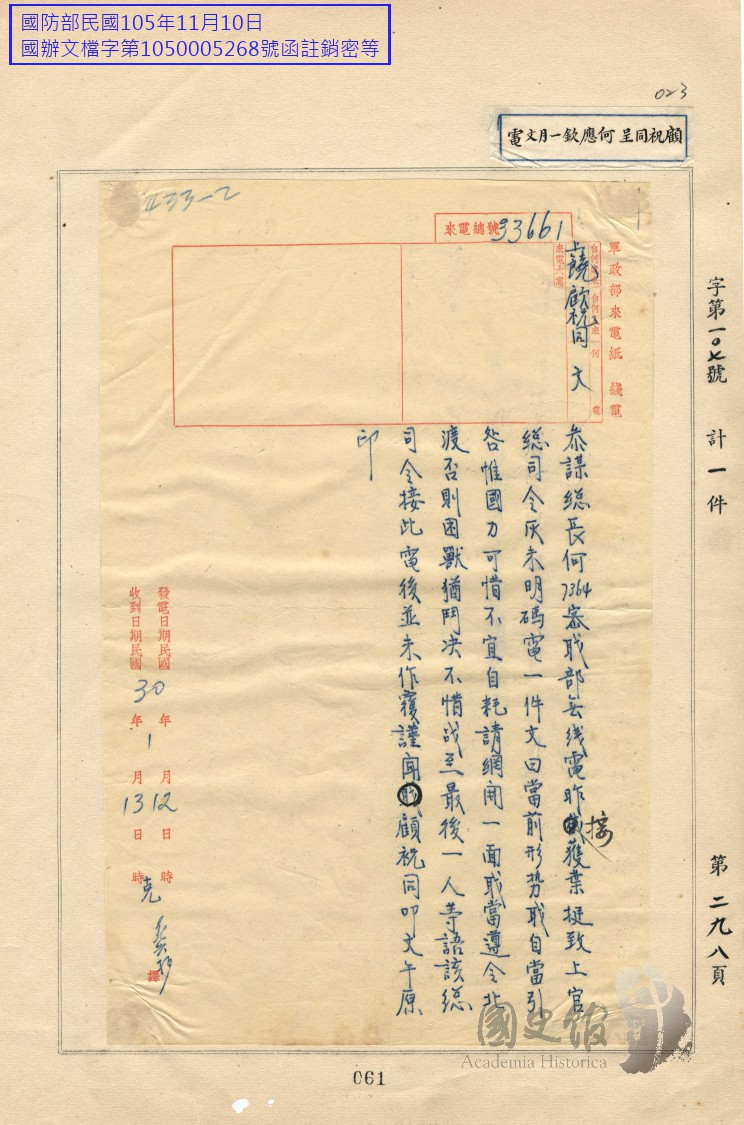 國防部民國105年11月10日
國辦文檔字第1050005268號函註銷密等
023
顧祝同呈何應欽一月文電
II33-2
來電總號 33661
軍政部來電紙 綫電
上饒 顧祝同 文
來電大意
參謀總長何7364密職部無线電昨接獲葉挺致上官
總司令灰未明碼電一件文曰當前形势职自當引
咎惟國力可惜不宜自耗請網開一面职當遵令北
渡否則困獸猶鬥决不惜战至最後一人等語該總
司令接此電後並未作覆謹聞 顧祝同叩文午原
印
發電日期民國30年1月12日 時
收到日期民國 年 月13日 時
譯
字第一〇七號 計一件 第二九八頁
國史館
Academia Historica
061